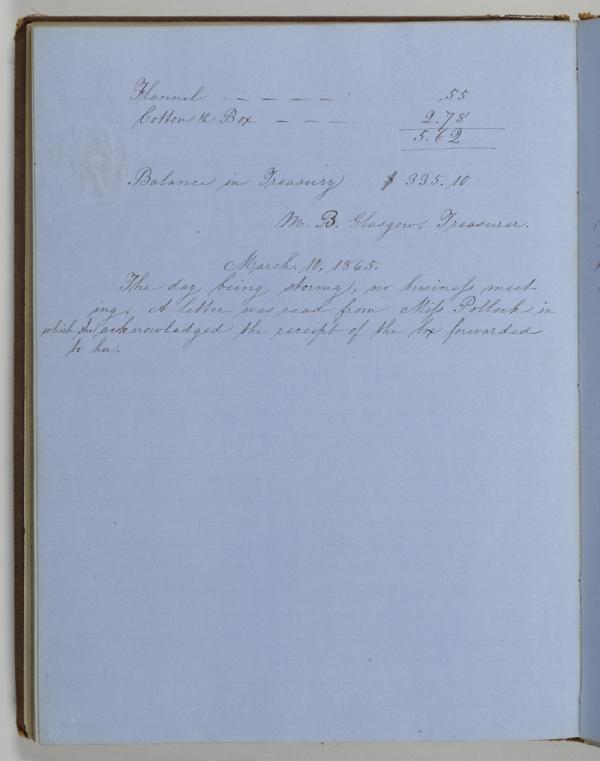 Flannel . — — — — — . .55
Cotton & Box — — — — 2.78
5.62
Balance in Treasury $ 335.10
M. B. Glasgow, Treasurer.
March, 10, 1865.
The day being stormy, no business meet-
ing. A letter was read from Miss Pollock in
which she acknowledged the receipt of the box forwarded
to her.